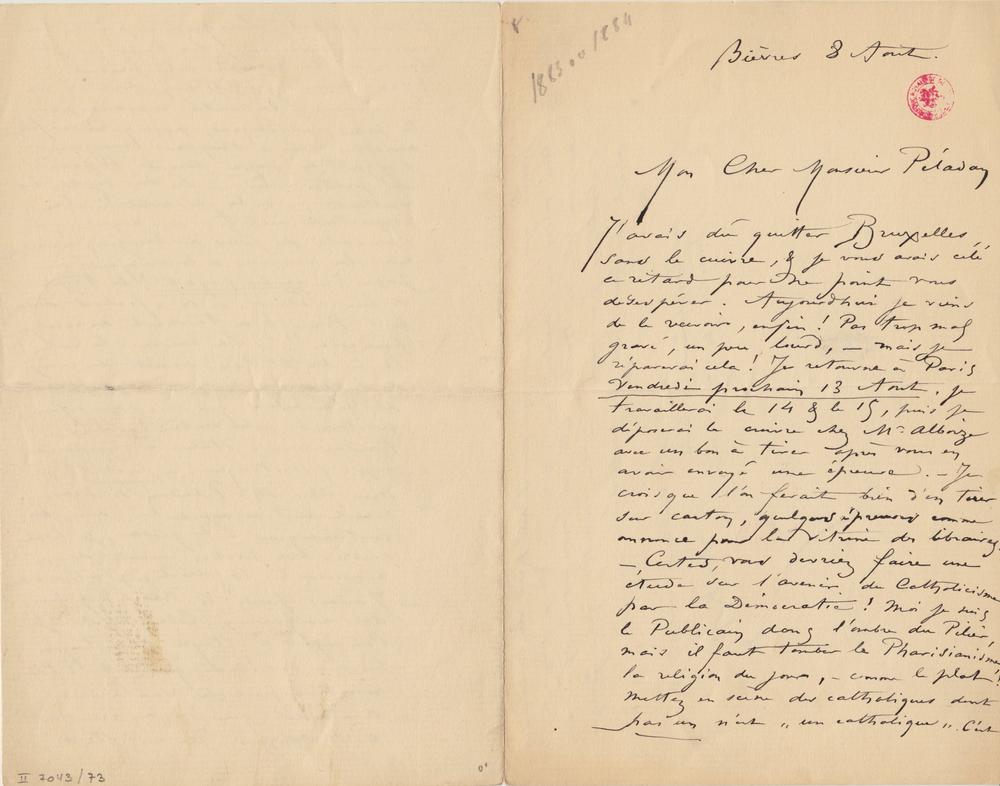 1883 ou 1884
Bièvres 8 Août.
Mon Cher Monsieur Péladan
J'avais dû quitter Bruxelles,
sans le cuivre, & je vous avais celé
ce retard pour ne point vous
désespérer. Aujourdhui je viens
de le recevoir, enfin! Pas trop mal
gravé, un peu lourd, – mais je
réparerai cela! Je retourne à Paris
Vendredi prochain 13 Août. je
travaillerai le 14 & le 15, puis je
déposerai le cuivre chez Mr. Alboize
avec un bon à tirer après vous en
avoir envoyé une épreuve. – Je
crois que l'on ferait bien d'en tirer
sur carton, quelques épreuves comme
annonce pour la vitrine des libraires.
– Certes, vous devriez faire une
étude sur l'avenir du Catholicisme
par la Démocratie! Moi je suis
le Publicain dans l'ombre du Pilier,
mais il faut tomber le Pharisianisme
la religion du jour, – comme le plat!
Mettez en scène des catholiques dont
pas un n'est „ un catholique ". C'est
II 7043/73